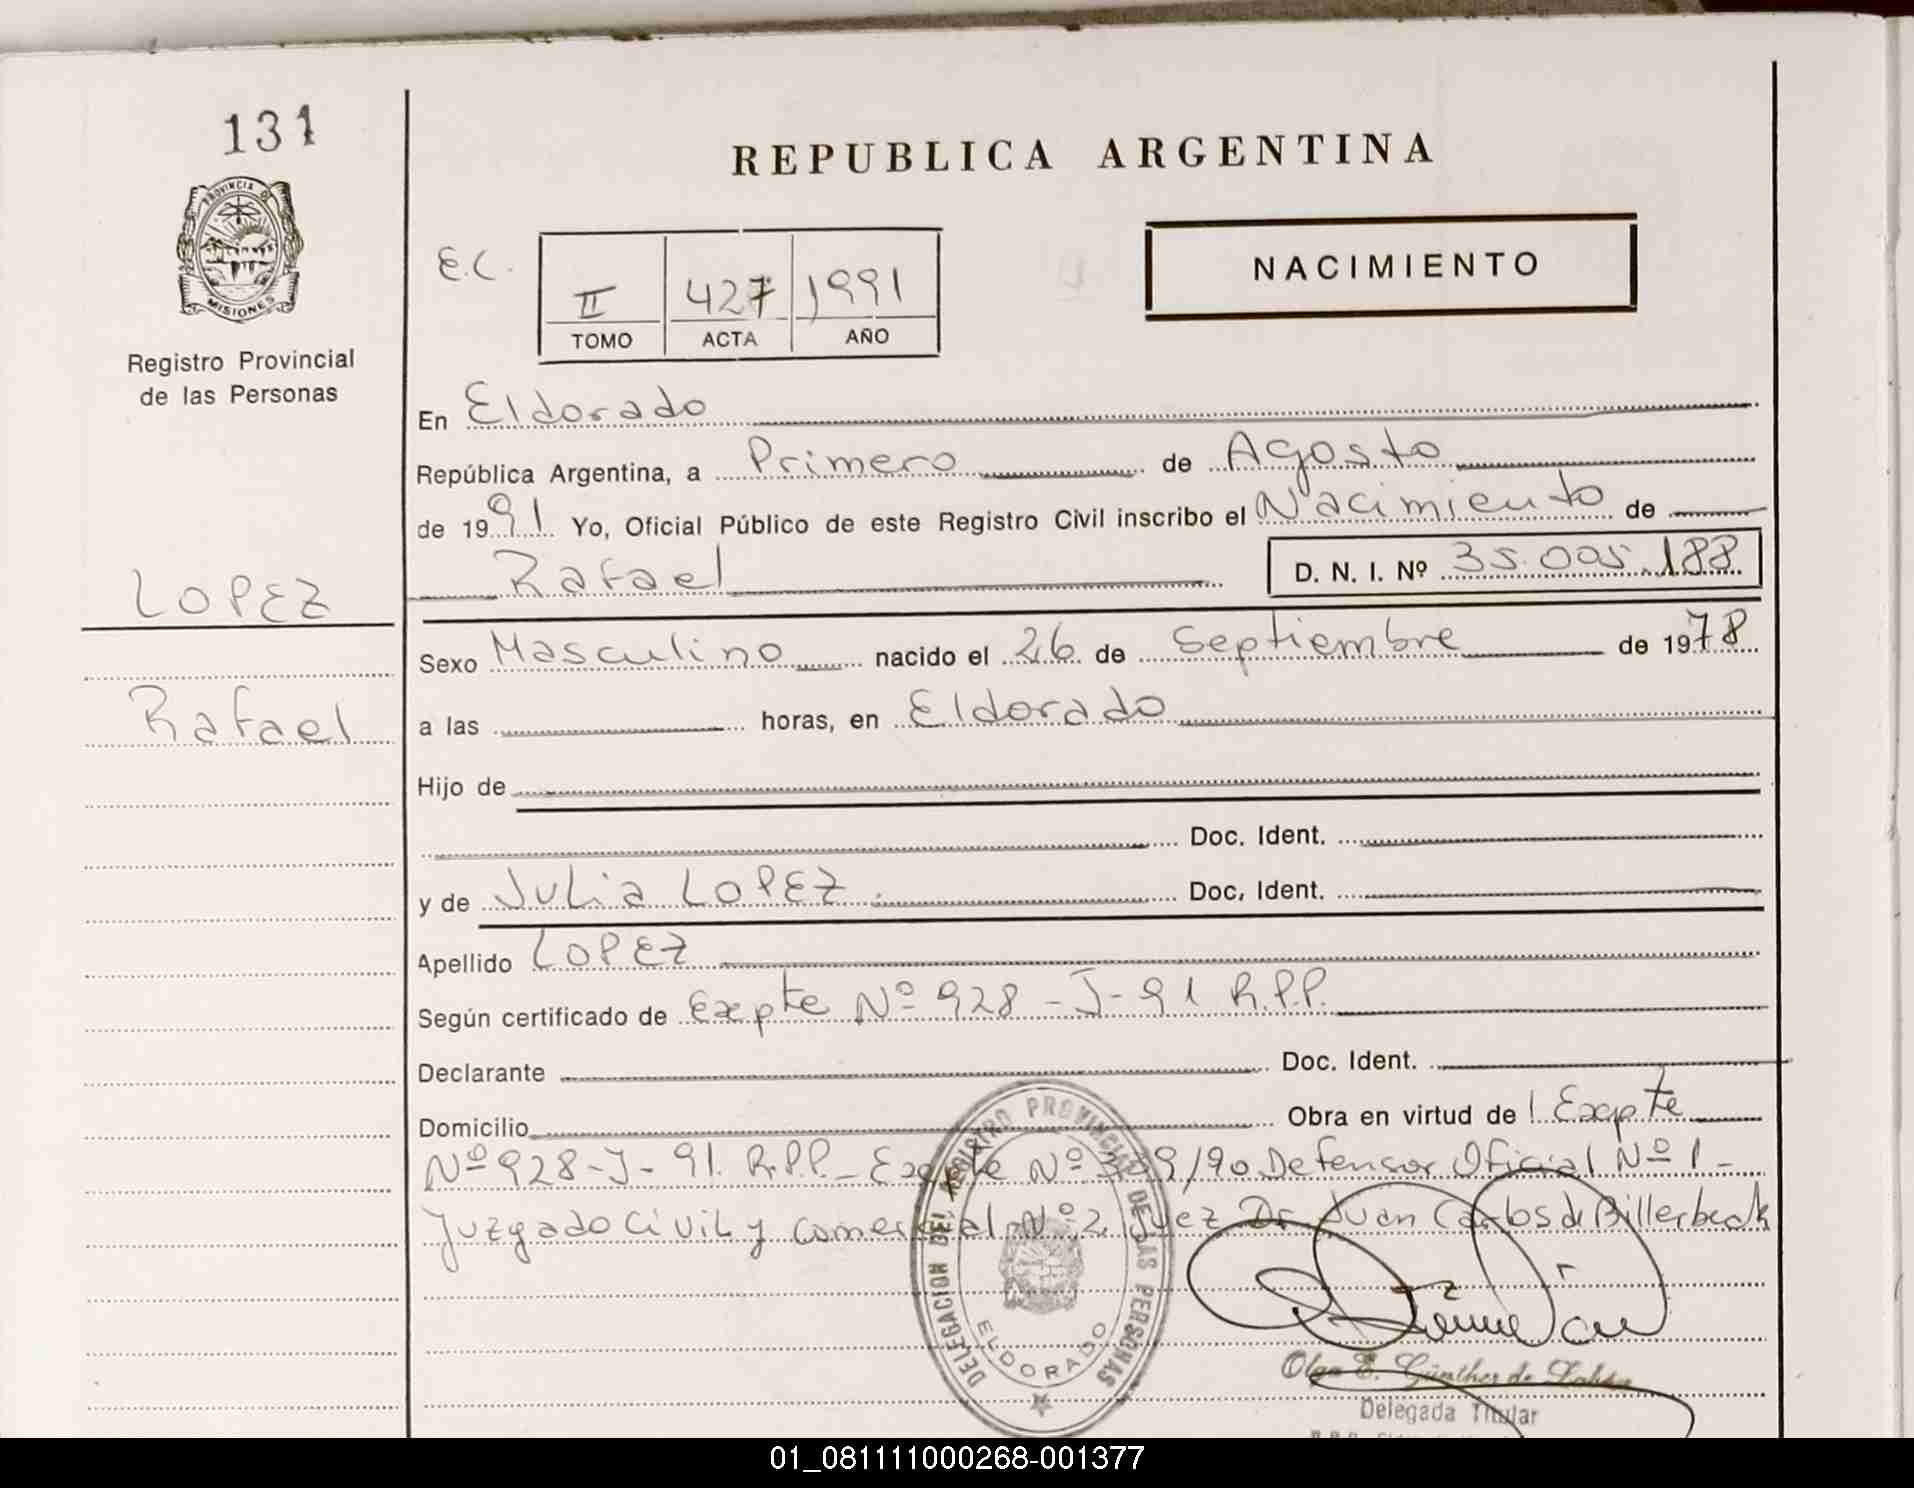 131
REPUBLICA ARGENTINA
PROVINCIA DE
MISIONES
Registro Provincial
de las Personas
E.C.
II 427 1991
TOMO ACTA AÑO
NACIMIENTO
En Eldorado
República Argentina, a Primero de Agosto
de 1991 Yo, Oficial Público de este Registro Civil inscribo el Nacimiento de
Rafael D. N. I. Nº 35.005.188
LOPEZ
Rafael
Sexo Masculino nacido el 26 de Septiembre de 1978
a las horas, en Eldorado
Hijo de
Doc. Ident.
y de Julia LOPEZ Doc. Ident.
Apellido LOPEZ
Según certificado de Exepte Nº 928-J-91 R.P.P.
Declarante Doc. Ident.
Domicilio Obra en virtud de Exepte
Nº 928-J-91. R.P.P.- Exepte Nº /90 Defensor Oficial Nº 1-
Juzgado Civil y Comercial Nº 2 Juez Dr. Juan Carlos de Billerbeck
DELEGACION DEL REGISTRO PROVINCIAL DE LAS PERSONAS
ELDORADO
Olga E. Günther de
Delegada Titular
01_081111000268-001377